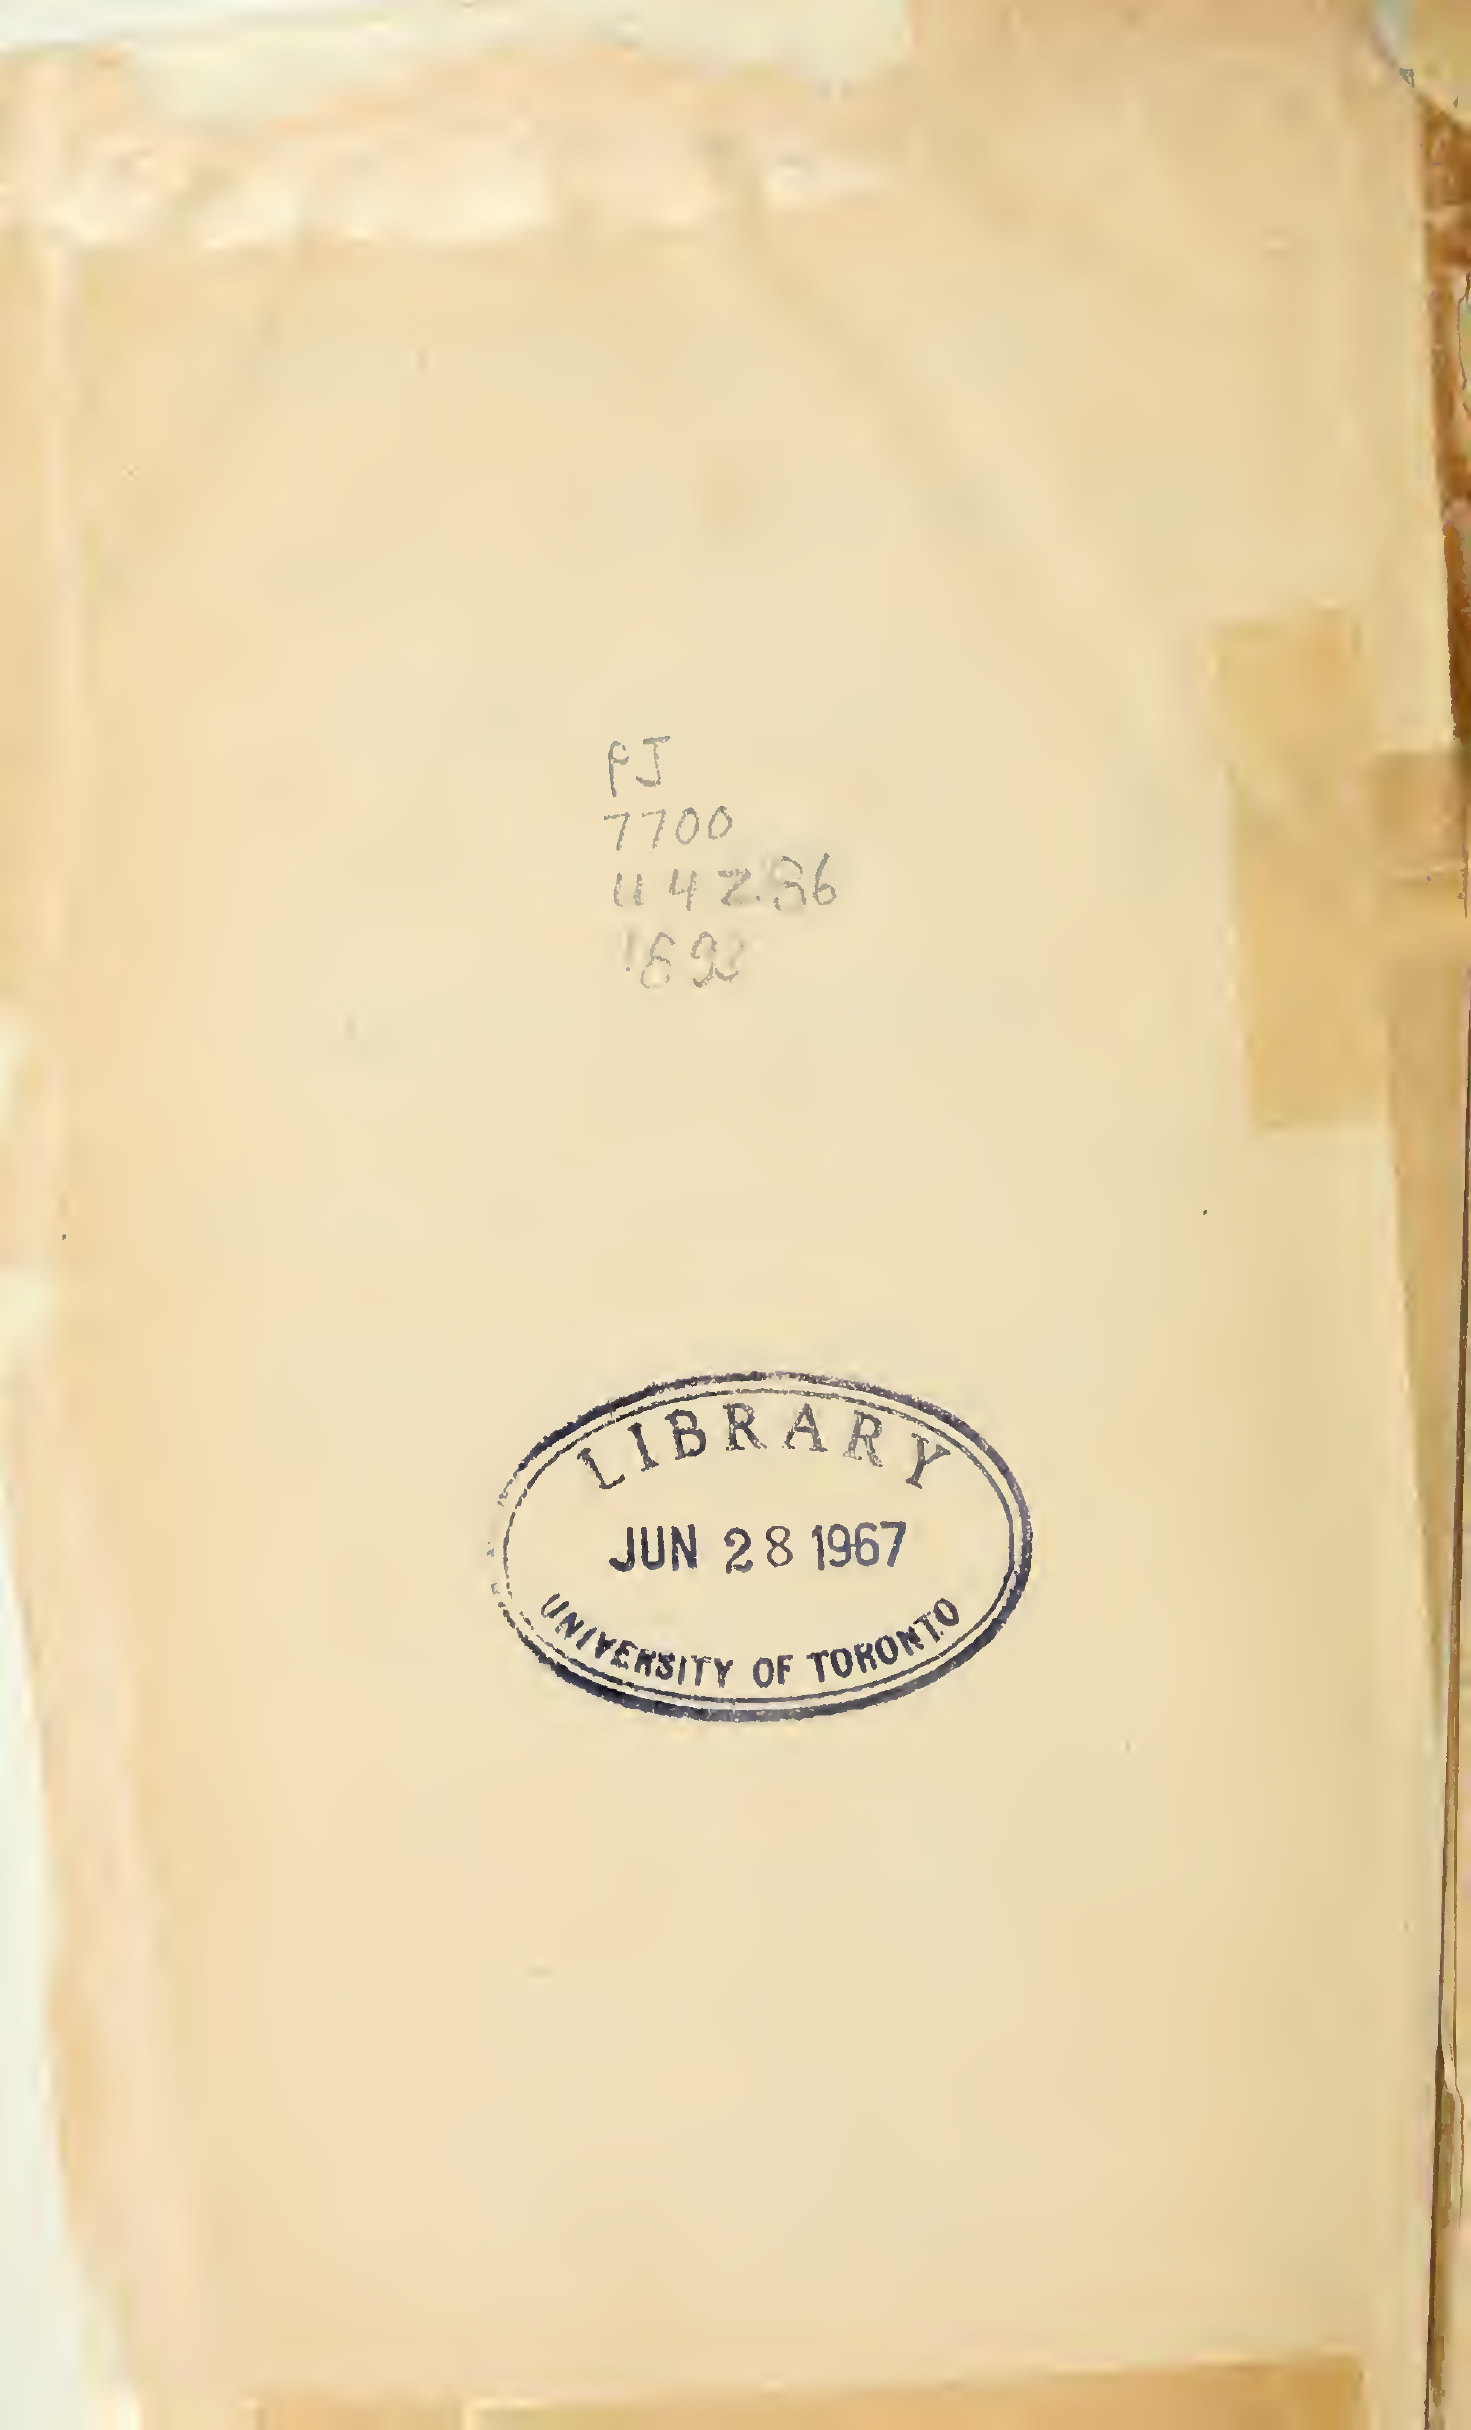 PJ
7700
U4Z.86
LIBRARY
JUN 28 1967
UNIVERSITY OF TORONTO